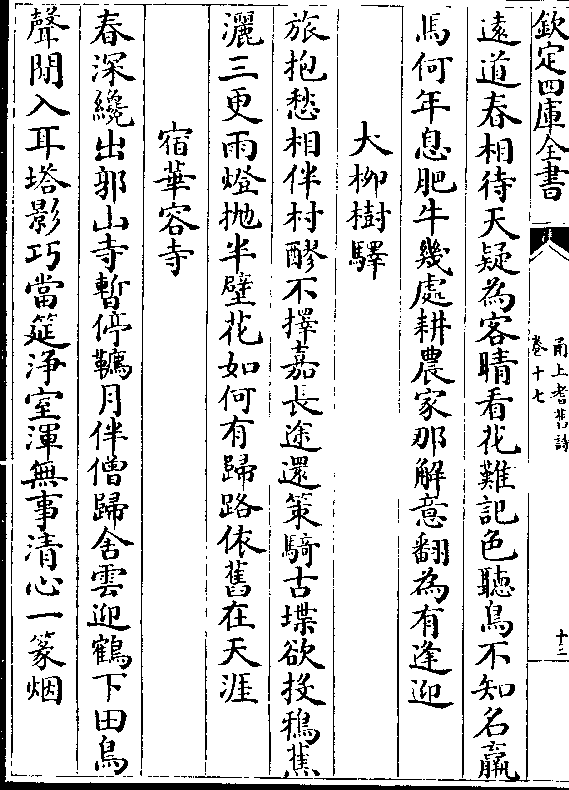 欽定四庫全書
甬上耆舊詩
卷十七
十三
遠道春相待天疑為客晴看花難記色聽鳥不知名羸
馬何年息肥牛幾處耕農家那解意翻為有逢迎
大柳樹驛
旅抱愁相伴村醪不擇嘉長途還策騎古堞欲投鴉蕉
灑三更雨燈拋半壁花如何有歸路依舊在天涯
宿華容寺
春深纔出郭山寺暫停韉月伴僧歸舍雲迎鶴下田鳥
聲閒入耳塔影巧當筵淨室渾無事清心一篆烟